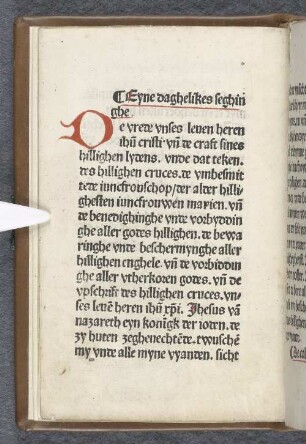 ⸿ Eyne daghelikes seghin
ghe.
De vrede vnses leuen heren
ihū cristi vn̄ de craft sines
hillighen lydens. vnde dat teken.
des hillighen cruces. de vmbesmit
tede iuncfrouschop/der alder hilli-
ghesten iuncfrouwen marien. vn̄
de benedighinghe vnde vorbyddin
ghe aller godes hillighen. de bewa
ringhe vnde beschermynghe aller
hillighen enghele. vn̄ de vorbiddin
ghe aller vtherkoren godes. vn̄ de
vpschrift des hillighen cruces. vn-
ses leuē heren ihū xp̄i. Jhesus vā
nazareth eyn konīgk der ioden. de
zy huten zeghenechtēde. twuschē
my vnde alle myne vyanden. sicht